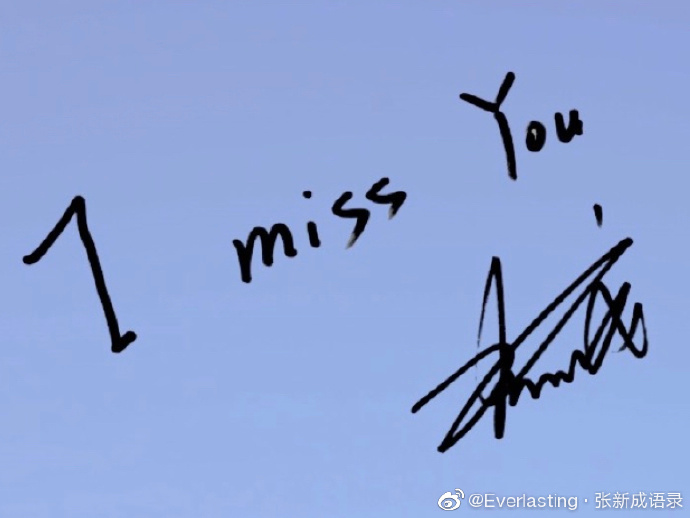 I miss You
@Everlasting·张新成语录